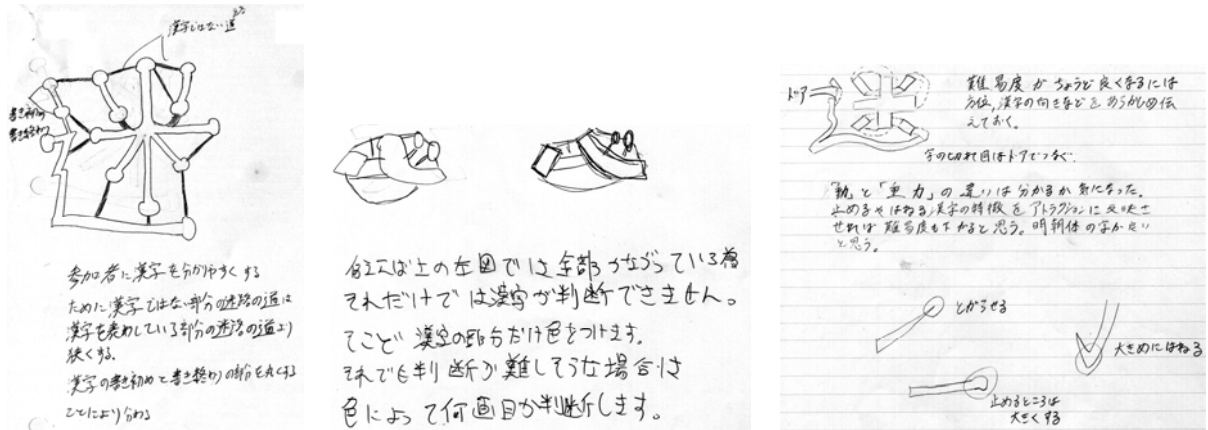 漢字ではない道
書き初め
書き終わり
参加者に漢字を分かりやすくする
ために漢字ではない部分の迷路の道は
漢字を表めしている部分の迷路の道より
狭くする。
漢字の書き初めと書き終わりの部分を丸くする
ことにより分かる
例えば上の左図では全部つながっている為
それだけでは漢字が判断できません。
てこで漢字の部分だけ色をつけます。
それでも判断が難しそうな場合は
色によって何画目か判断します。
ドア
難易度がちょうど良くなるには
方位,漢字の向きなどをあらかじめ伝
えておく。
字の切れ目はドアでつなぐ.
「動」と「重力」の違いは分かるか気になった。
止めるやはねる漢字の特徴をアトラクションに反映さ
せれば難易度も下がると思う。明朝体の字がいい
と思う。
とがらせる
大きめにはねる
止めるところは
大きくする